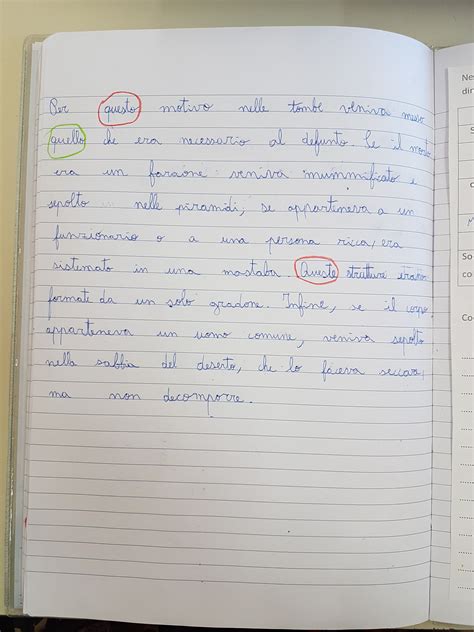 Per questo motivo nelle tombe veniva messo
quello che era necessario al defunto. Se il morto
era un faraone veniva mummificato e
sepolto nelle piramidi, se apparteneva a un
funzionario o a una persona ricca, era
sistemato in una mastaba. Queste strutture erano
formate da un solo gradone. Infine, se il corpo
apparteneva un uomo comune, veniva sepolto
nella sabbia del deserto, che lo faceva seccare,
ma non decomporre.
Ne
din
So
co
Co